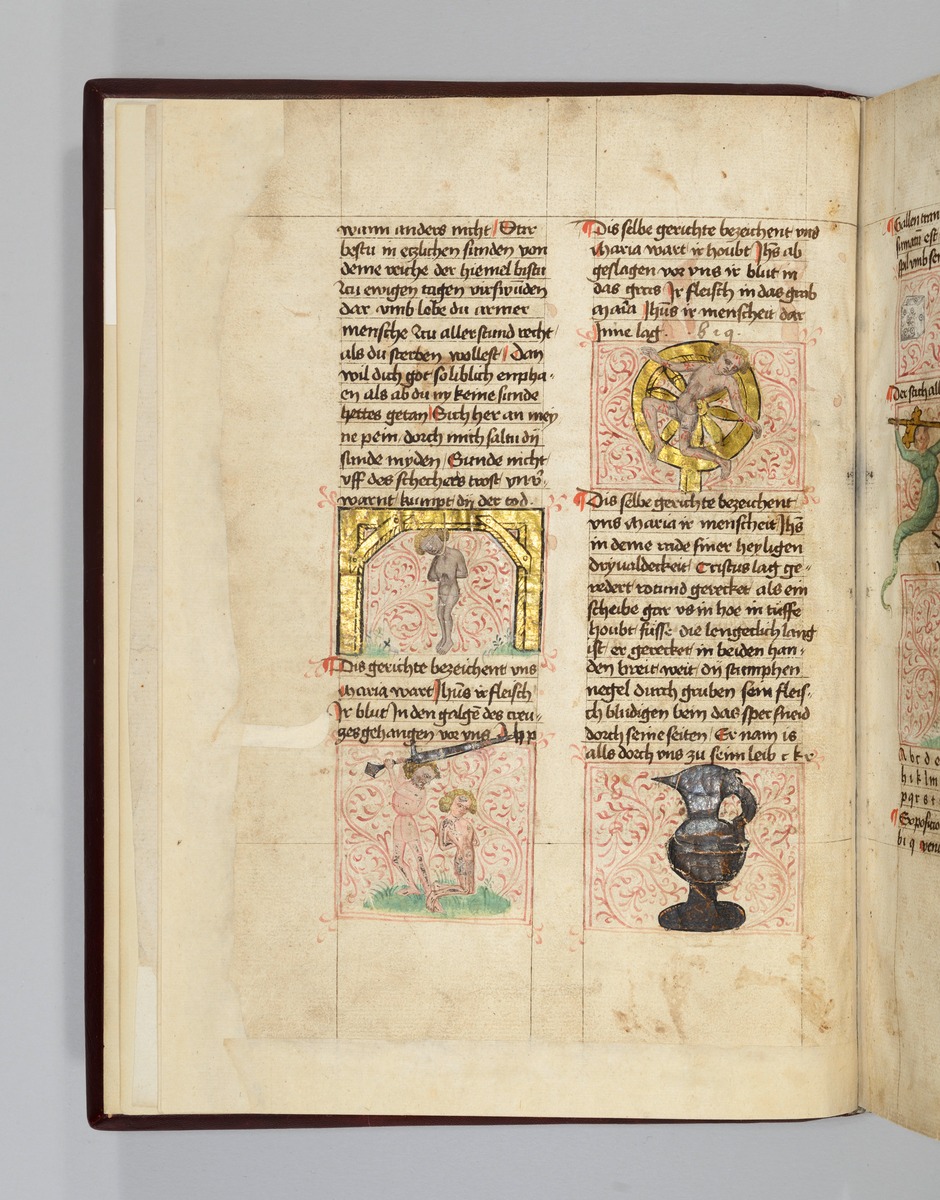 wann anders nicht Star
bestu in etzlichen sunden von
deme reiche der hiemel bistu
zcu ewigen tagen virswunden
dar vmb lebe du armer
mensche zcu aller stund recht
als du sterben wollest Dan
wil dich got so liblich enpha-
en als ab du ny keine sunde
hettes getan Sich her an mey
ne pein dorch mich saltu dy
sunde myden Sunde nicht
vff des schechers trost
warnt kumpt dy der tod.
Dis gerichte bezeichent vns
Maria wart Jhūs ir fleisch
Ir blut In den galgē des creu-
zes gehangen vor vns
Dis selbe gerichte bezeichent vns
Maria wart ir houbt Jhs ab
geslagen vor vns ir blut in
das gras Ir fleisch in das grab
Maria Jhūs ir menscheit dar
Inne lag. b i q.
Dis selbe gerichte bezeichent
vns Maria ir menscheit Jhs
in deme rade siner heyligen
dryualdeckeit Cristus lag ge-
redert vnd gerecket als ein
scheibe gar vs in hoe in tuffe
houbt fusse die lengerlich lang
ist er gerecket in beiden han-
den breit weit dy stumphen
negel durch gruben sein fleis-
ch bludigen bern das sper sneid
dorch seine seiten Er nam is
alls dorch vns zu seim leib c k r
Gallen
Der stich all
A b c d e
h i k l m
p q r s t
b i q